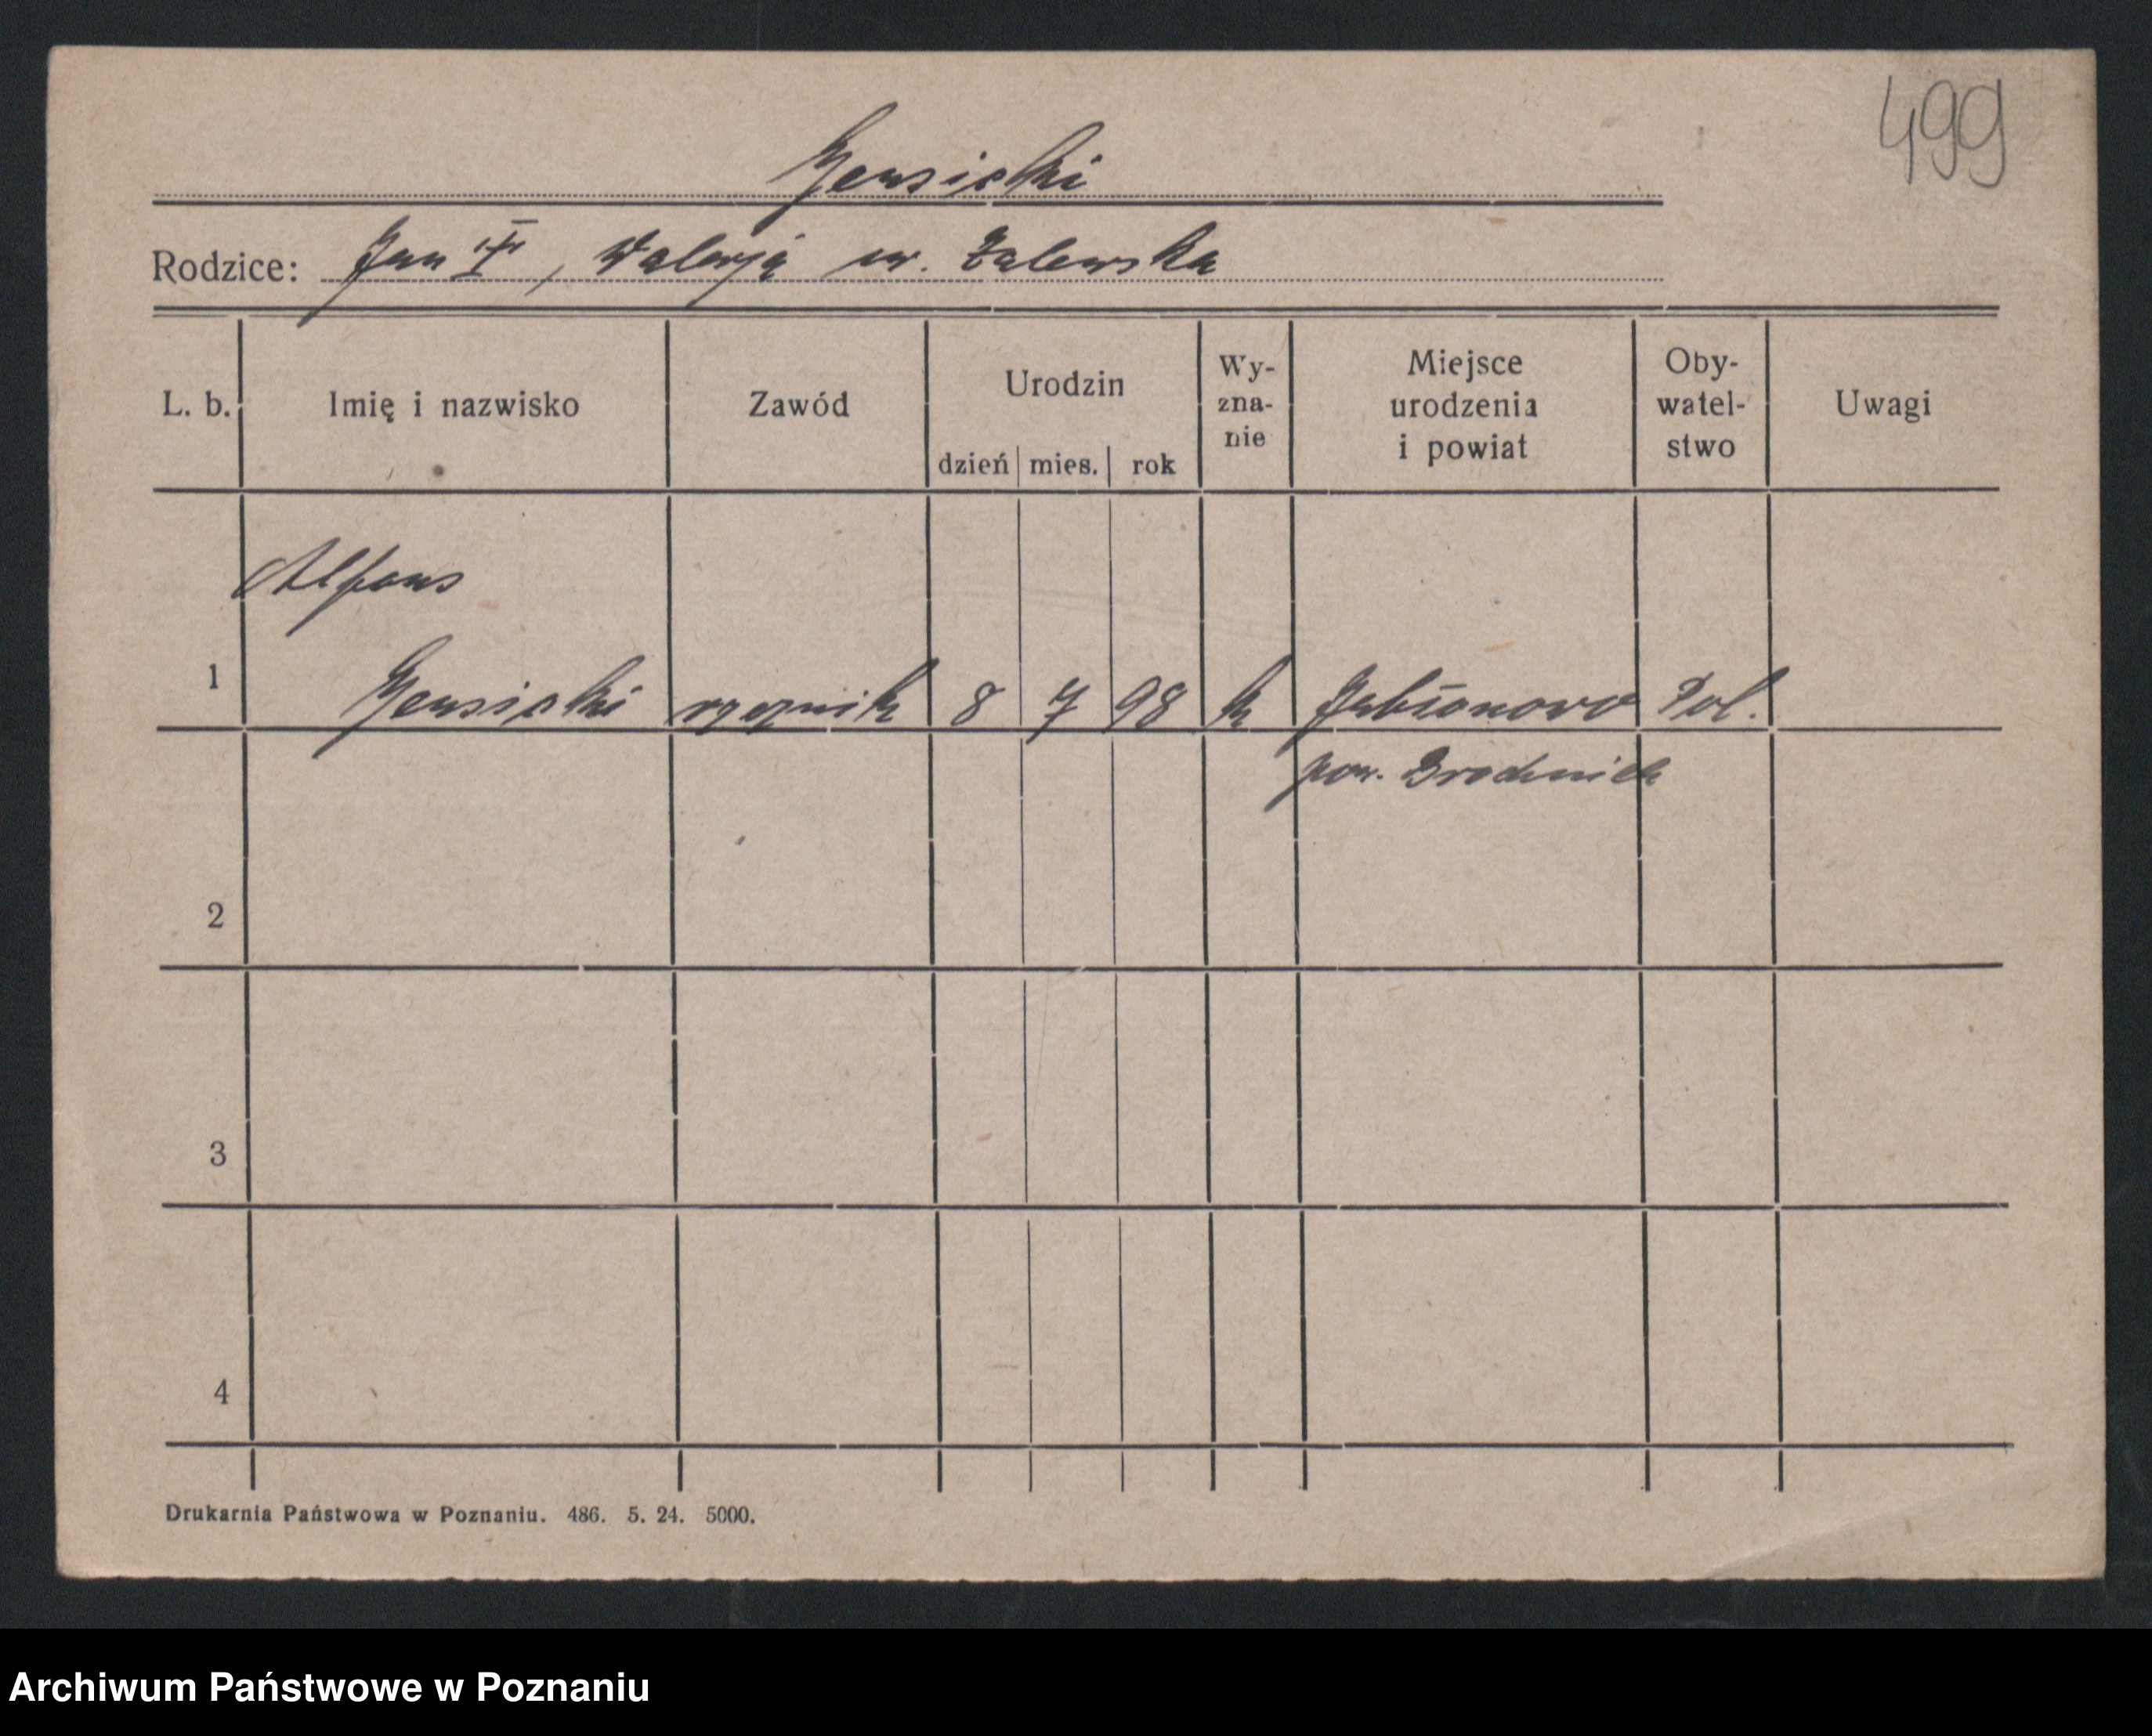 499
Gensicki
Rodzice: Jan +, Walerja ur. Zalewska
L. b. Imię i nazwisko Zawód Urodzin dzień mies. rok Wy-zna-nie Miejsce urodzenia i powiat Oby-watel-stwo Uwagi
Alfons
1 Gensicki rzeźnik 8 7 98 k Jabłonowo Pol.
pow. Brodnica
2
3
4
Drukarnia Państwowa w Poznaniu. 486. 5. 24. 5000.
Archiwum Państwowe w Poznaniu